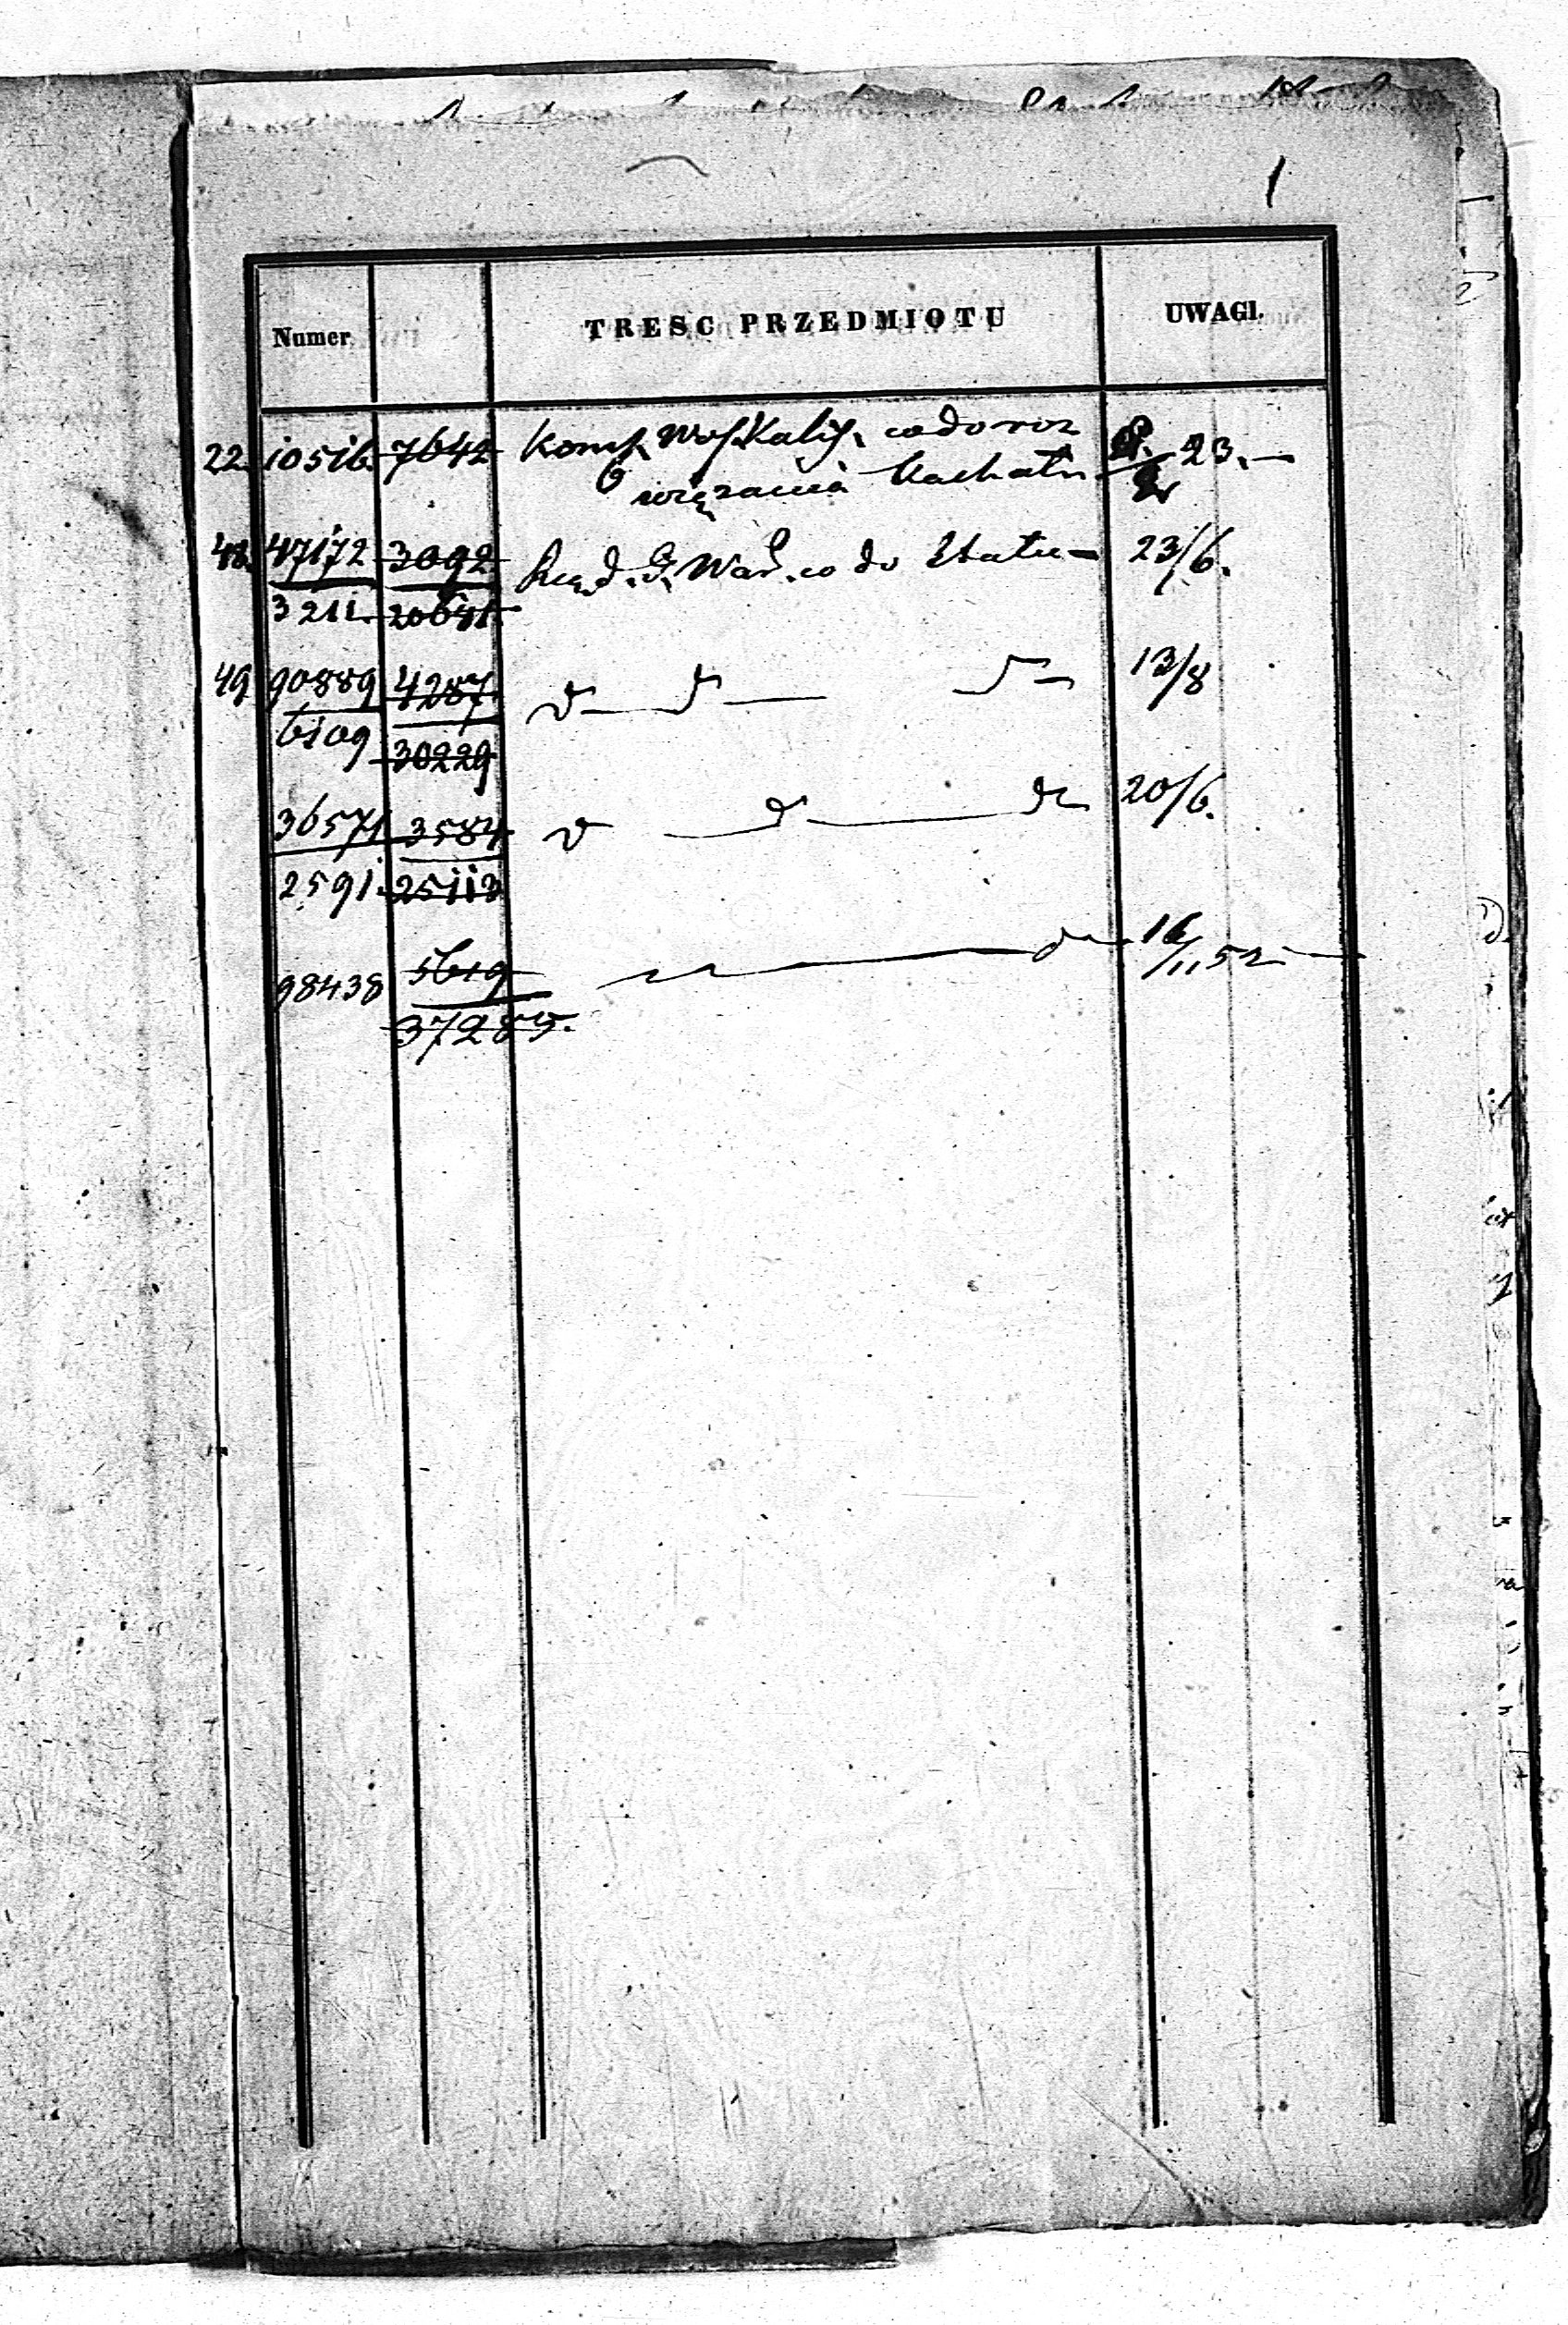 1
Numer TRESC PRZEDMIOTU UWAGI.
22. 10516. 7642 Koms. Woj. Kalis. co do roz 23.—
wiązania
48. 47172 3092 Rzą. d. G. War. co do Etatu — 23/6.
3211. 20681.
49 90889 4287. d— d— d— 13/8
6109 30229
36571 3584 d d dt 20/6.
2591. 25113
98438 5619 d— 16/11 52
37285.